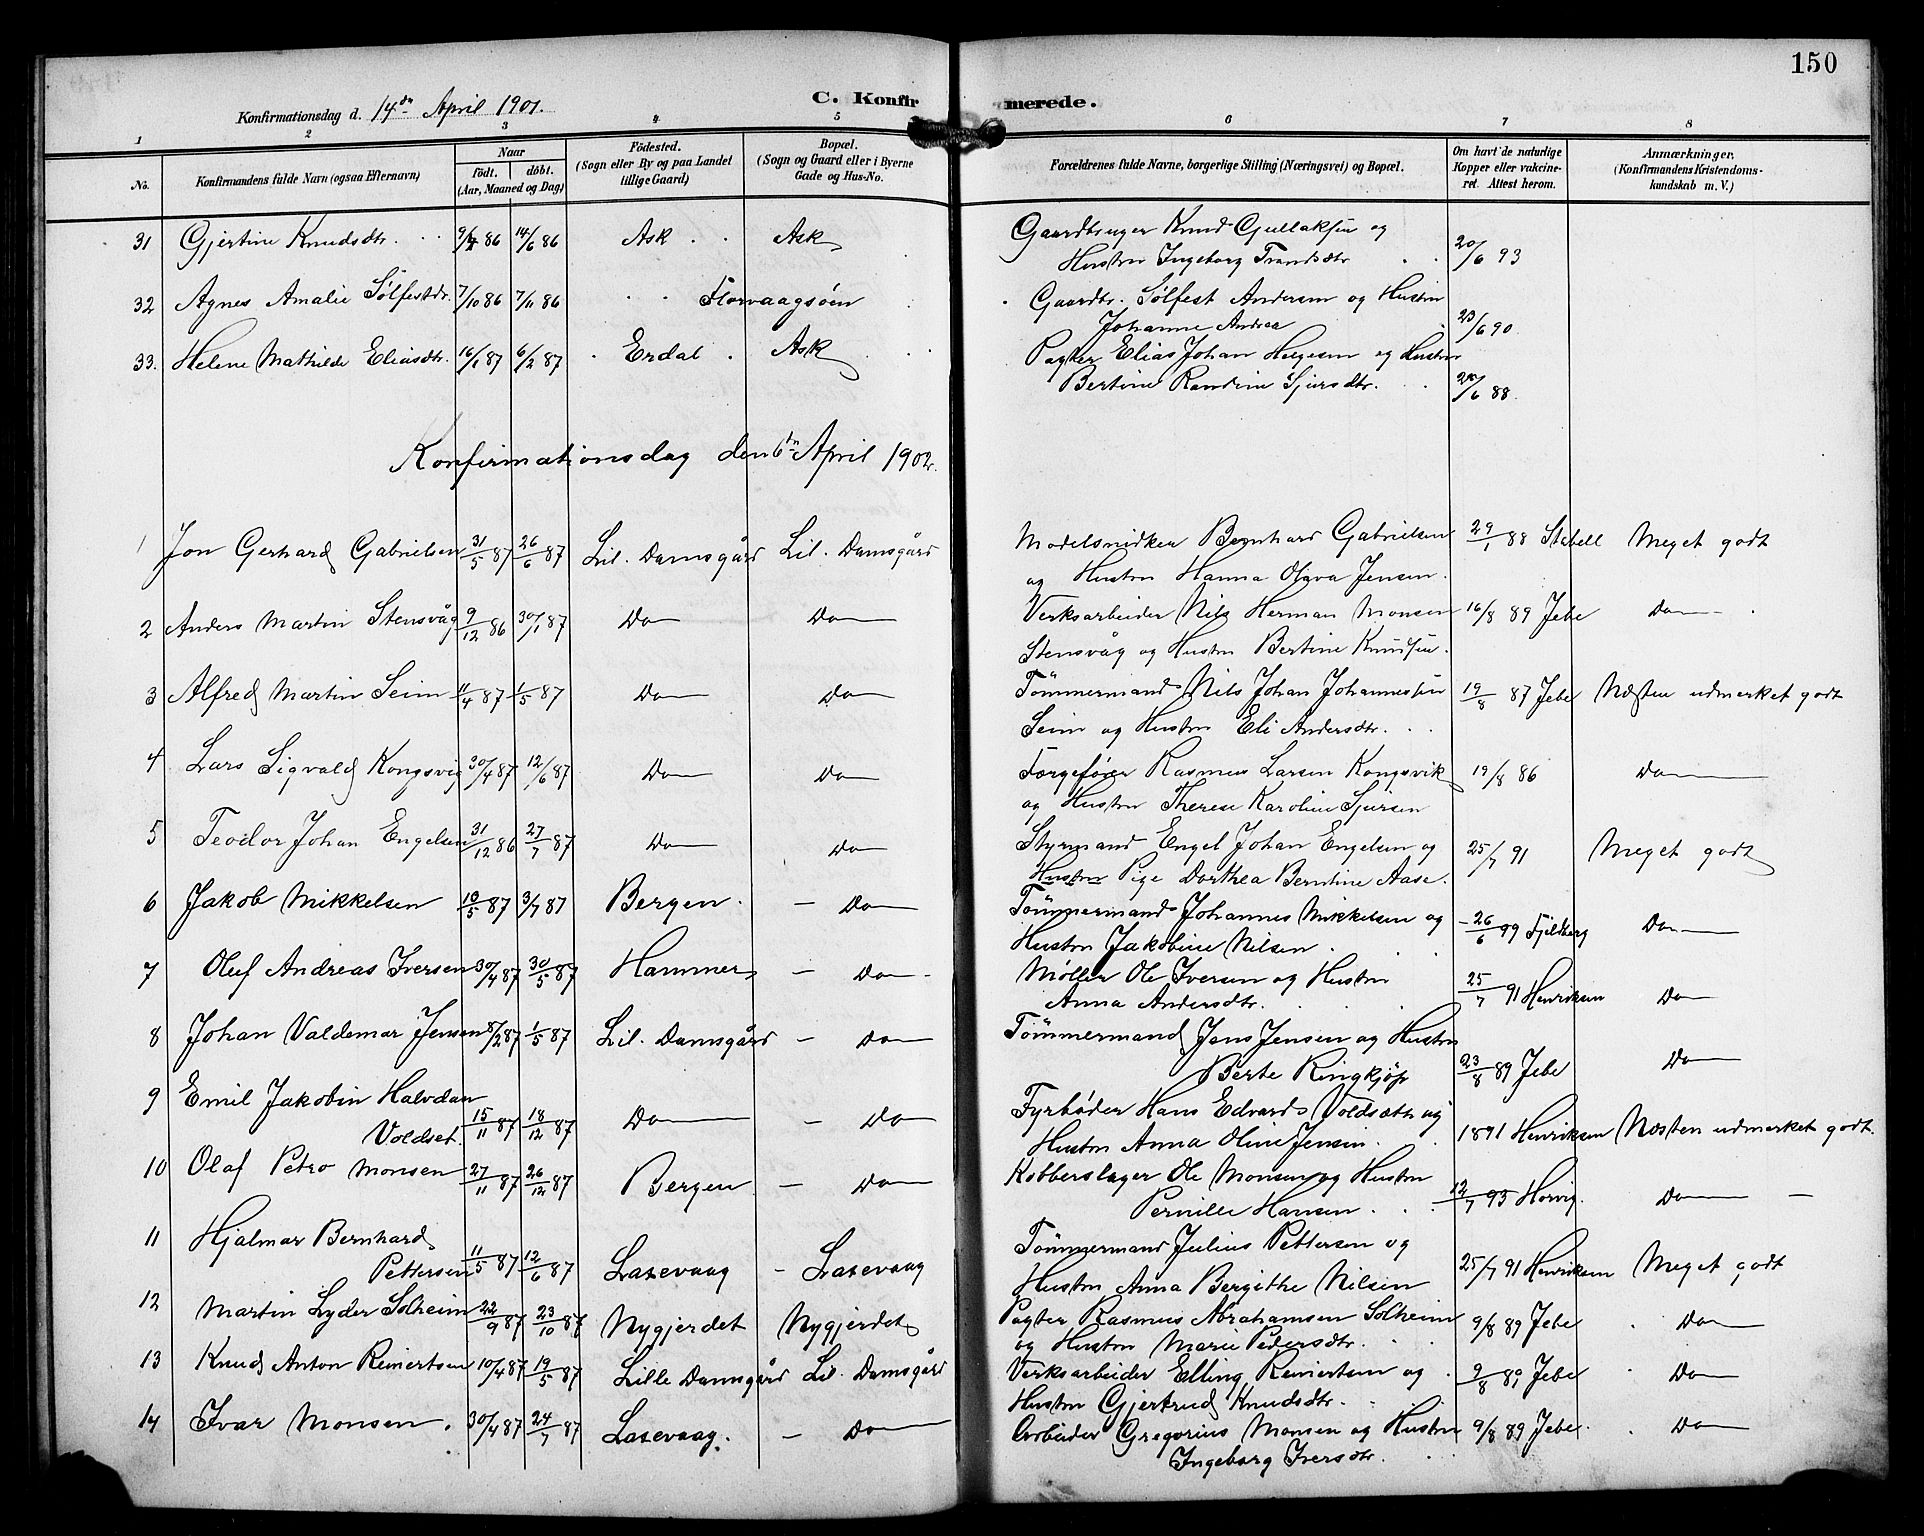 150
Konfirmationsdag d. 14de April 1901.
C. Konfirmerede.
1 2 3 4 5 6 7 8
No.
Konfirmandens fulde Navn (ogsaa Efternavn)
Naar
født. døbt.
(Aar, Maaned og Dag)
Födested.
(Sogn eller By og paa Landet
tillige Gaard)
Bopæl.
(Sogn og Gaard eller i Byerne
Gade og Hus-No.
Forældrenes fulde Navne, borgerlige Stilling (Næringsvei) og Bopæl.
Om havt de naturlige
Kopper eller vakcine-
ret. Attest herom.
Anmærkninger.
(Konfirmandens Kristendoms-
kundskab m. V.)
31 Gjertine Knudsdtr. 9/4 86 14/6 86 Ask Ask Gaardbruger Knud Gullaksen og
Hustru Ingeborg Trondsdtr 20/6 93
32 Agnes Amalie Sølfestdr. 7/10 86 7/11 86 Florvaagsøen Gaardbr. Sølfest Andersen og Hustru
Johanne Andrea 23/6 90
33. Helene Mathilde Eliasdtr. 16/1 87 6/2 87 Erdal Ask Pagter Elias Johan Helgesen og Hustru
Bertine Randine Sjursdtr. 28/6 88.
Konfirmationsdag den 6te April 1902.
1 Jon Gerhard Gabrielsen 31/5 87 26/6 87 Lil. Damsgård Lil. Damsgård Modelsnidker Bernhard Gabrielsen 29/1 88 Stabell Meget godt
og Hustru Hanna Olava Jensen.
2 Anders Martin Stensvåg 9/12 86 30/1 87 Do Do Verksarbeider Nils Herman Monsen 16/8 89 Jebe Do
Stensvåg og Hustru Bertine Knudsen.
3 Alfred Martin Seim 11/4 87 1/5 87 Do Do Tömmermand Nils Johan Johannessen 19/8 87 Jebe Næsten udmerket godt
Seim og Hustru Eli Andersdtr.
4 Lars Sigvald Kongsvig 30/4 87 12/6 87 Do Do Færgefører Rasmus Larsen Kongsvik 19/8 86 Do
og Hustru Therese Karoline Sjursen
5 Teodor Johan Engelsen 31/12 86 27/7 87 Do Do Styrmand Engel Johan Engelsen og 25/7 91 Meget godt
Hustru Pige Dorthea Berntine Aase.
6 Jakob Mikkelsen 10/5 87 3/7 87 Bergen. - Do Tömmermand Johannes Mikkelsen og 26/6 99 Fjeldberg Do
Hustru Jakobine Nilsen.
7 Oluf Andreas Iversen 30/4 87 30/5 87 Hammer - Do Møller Ole Iversen og Hustru 25/7 91 Henriksen Do
Anna Andersdtr.
8 Johan Valdemar Jensen 8/2 87 1/5 87 Lil. Damsgård - Do Tömmermand Jens Jensen og Hustru
Berte Ringkjöp 23/8 89 Jebe Do
9 Emil Jakobin Halvdan
Voldset. 15/11 87 18/12 87 Do - Do Fyrbøder Hans Edvard Voldsæter og
Hustru Anna Oline Jensen. 1891 Henriksen Næsten udmerket godt.
10 Olaf Petro Monsen 27/11 87 26/12 87 Bergen - Do Kobberslager Ole Monsen og Hustru
Pernille Hansen. 12/7 93 Horvig. Do
11 Hjalmar Bernhard
Pettersen 11/5 87 12/6 87 Laxevaag - Laxevaag Tömmermand Julius Pettersen og
Hustru Anna Bergithe Nilsen 25/7 91 Henriksen Meget godt
12 Martin Lyder Solheim 22/9 87 23/10 87 Nygjerdet Nygjerdet Pagter Rasmus Abrahamsen Solheim 9/8 89 Jebe Do
og Hustru Marie Pedersdtr.
13 Knud Anton Reinertsen 10/4 87 19/5 87 Lille Damsgård Lil. Damsgård Verksarbeider Elling Reinertsen og 9/8 89 Jebe Do
Hustru Gjertrud Knudsdtr.
14 Ivar Monsen. 30/4 87 24/7 87 Laxevaag. - Do Arbeider Gregorius Monsen og Hustru 9/8 89 Jebe Do
Ingeborg Iversdtr.